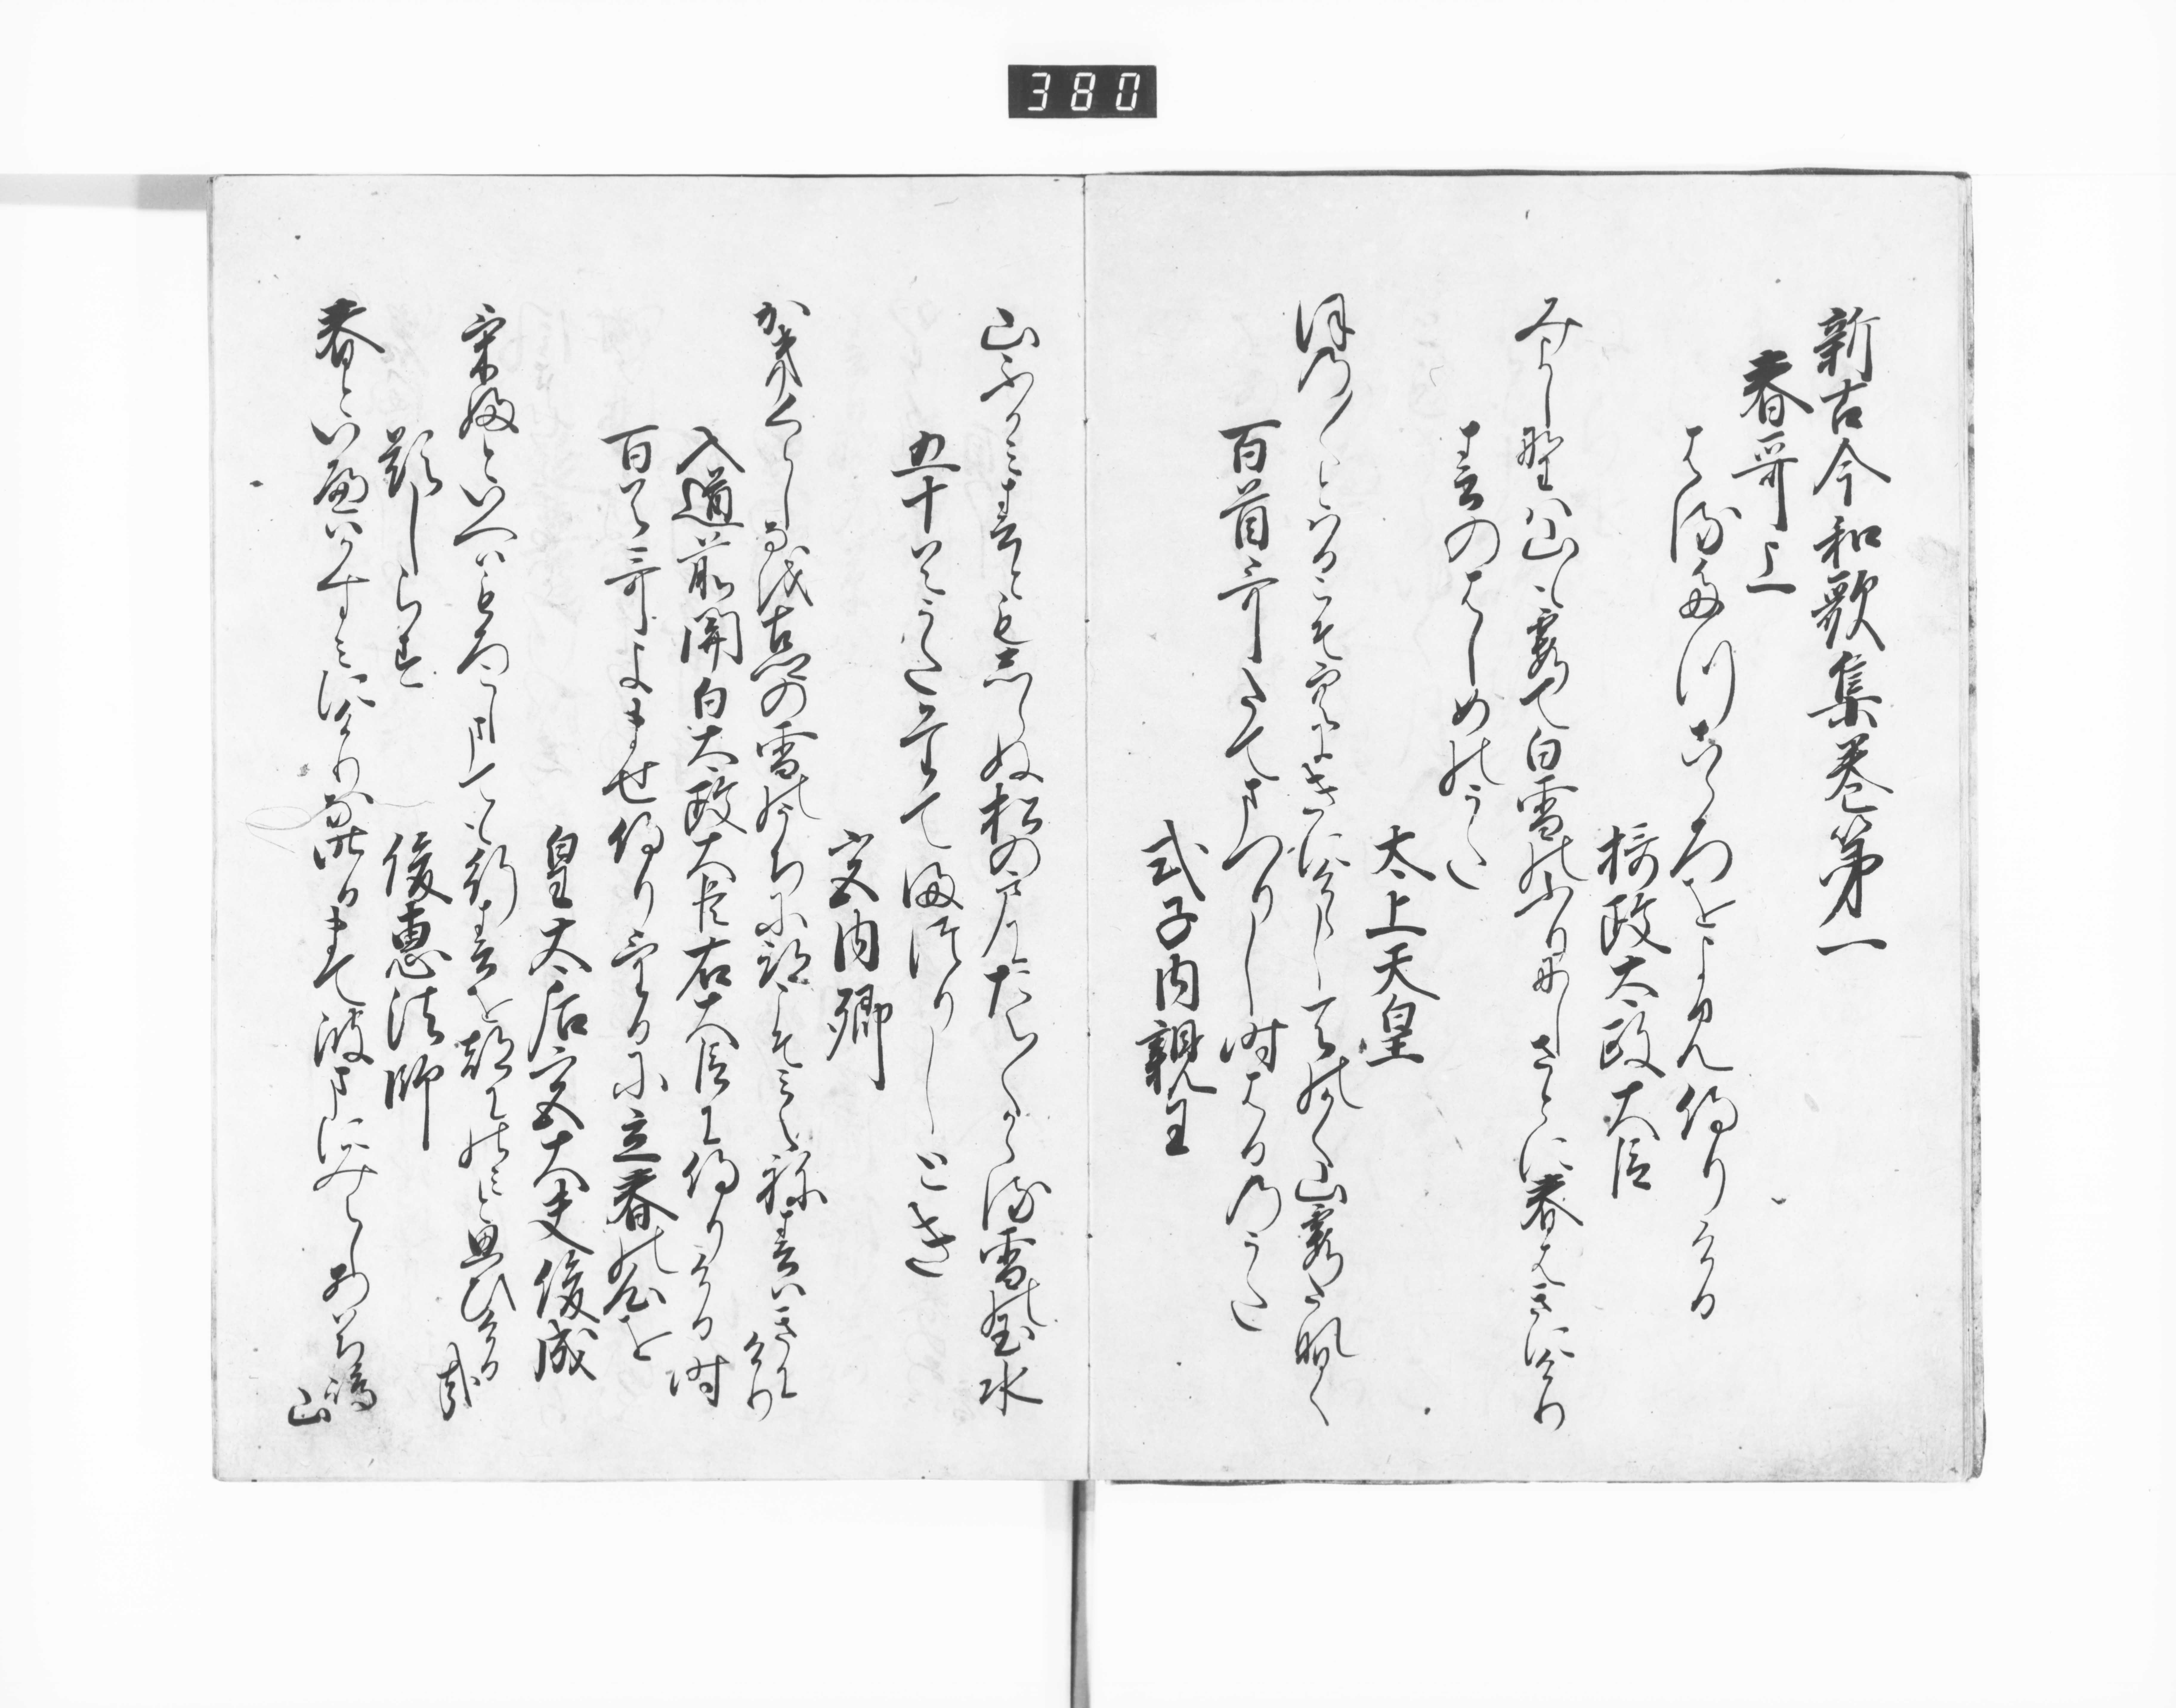 380
新古今和歌集巻第一
春哥上
はるたつこゝろをよみ侍りける
摂政太政大臣
みよし野は山も霞て白雪のふりにしさとに春はきにけり
春のはしめのうた
太上天皇
ほの／＼とはるこそ空にきにけらし天のかく山霞たなひく
百首哥たてまつりし時はるのうた
式子内親王
山ふかみ春ともしらぬ松の戸にたえ／＼かゝる雪の玉水
五十首うたたてまつりしとき
宮内卿
かきくらし猶古郷の雪のうちに跡こそみえね春はきにけり
入道前関白太政大臣右大臣に侍りける時
百首哥よませ侍りけるに立春の心を
皇太后宮大夫俊成
けふといへはもろこしまても行春を都にのみと思ひける哉
題しらす
俊恵法師
春といへはかすみにけりなきのふまて波まにみえしあはち嶋山